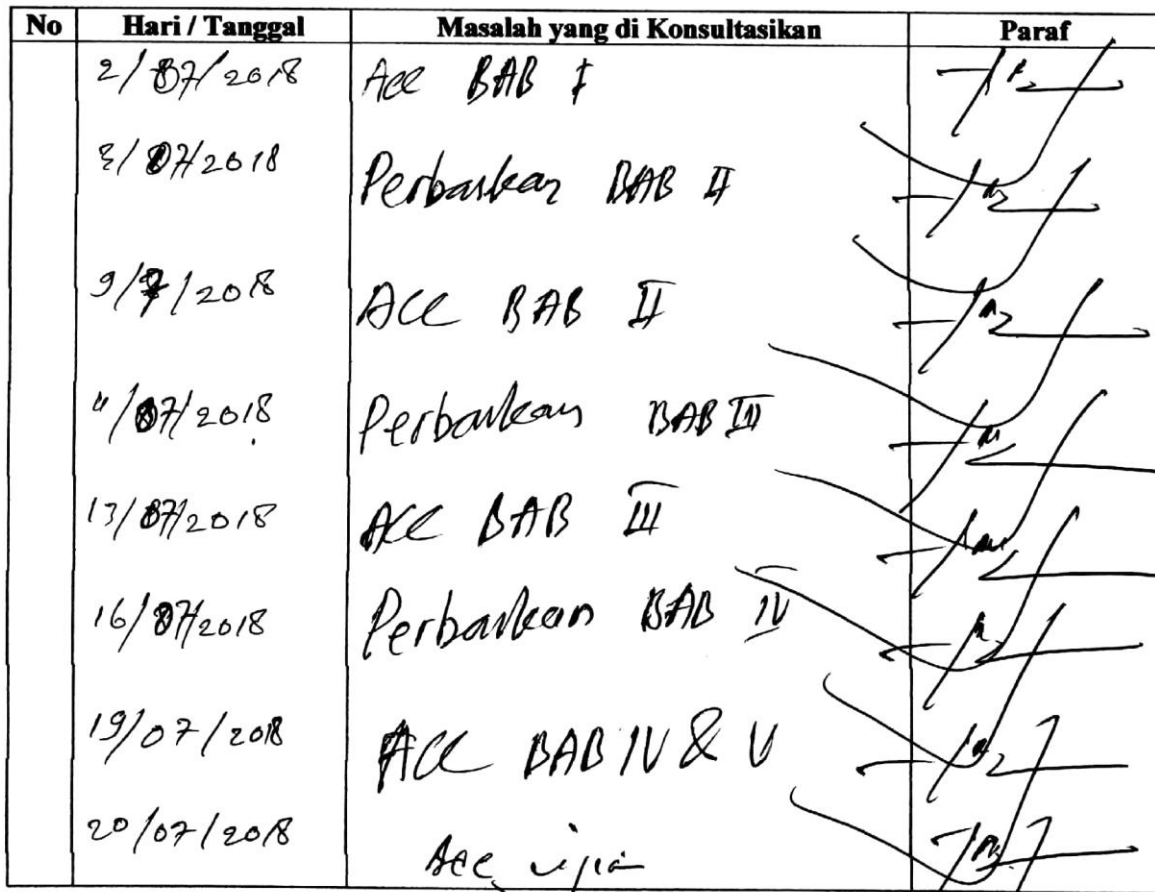 No Hari / Tanggal Masalah yang di Konsultasikan Paraf
2/07/2018 Acc BAB I
3/07/2018 Perbaikan BAB II
9/7/2018 Acc BAB II
11/07/2018 Perbaikan BAB III
13/07/2018 Acc BAB III
16/07/2018 Perbaikan BAB IV
19/07/2018 Acc BAB IV & V
20/07/2018 Acc ujian